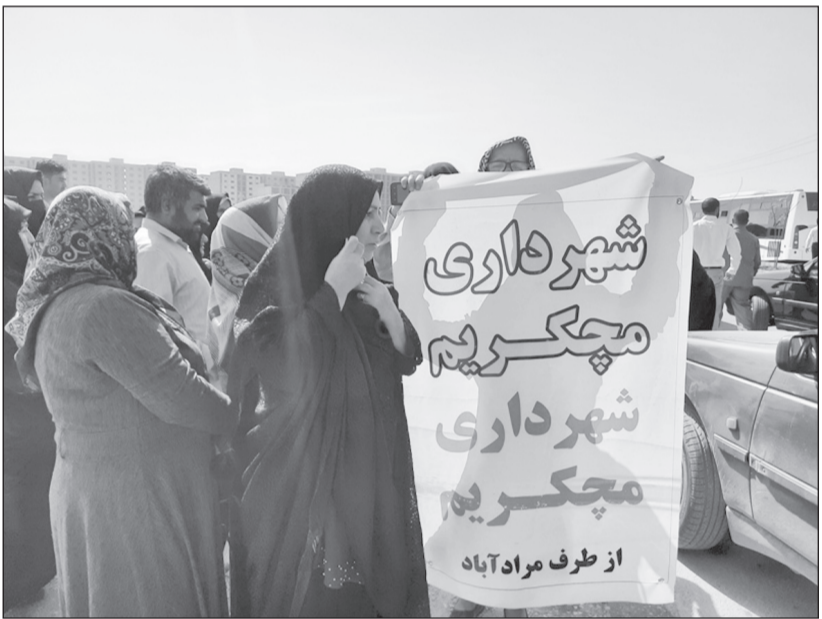 شهرداری
مچکریم
شهرداری
مچکریم
از طرف مرادآباد